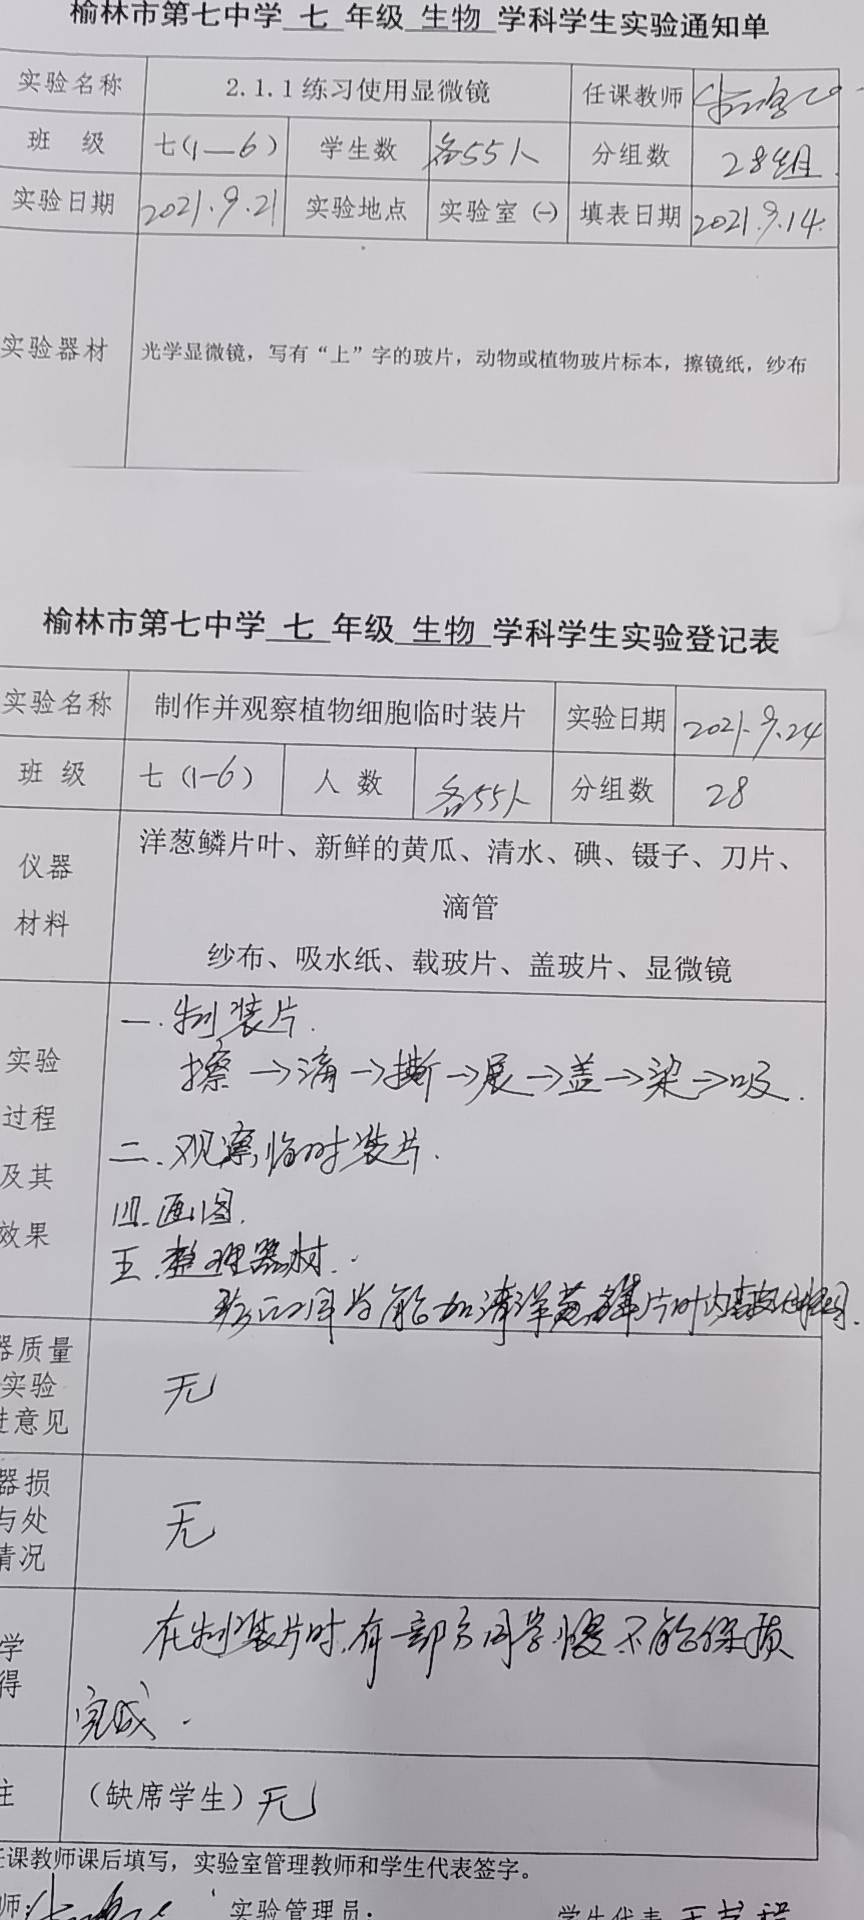 榆林市第七中学 七 年级 生物 学科学生实验通知单
实验名称 2.1.1 练习使用显微镜 任课教师
班 级 七(1—6) 学生数 各55人 分组数 28组
实验日期 2021.9.21 实验地点 实验室(一) 填表日期 2021.9.14
实验器材 光学显微镜，写有“上”字的玻片，动物或植物玻片标本，擦镜纸，纱布
榆林市第七中学 七 年级 生物 学科学生实验登记表
实验名称 制作并观察植物细胞临时装片 实验日期 2021.9.24
班 级 七(1-6) 人 数 各55人 分组数 28
仪器
材料
洋葱鳞片叶、新鲜的黄瓜、清水、碘、镊子、刀片、
滴管
纱布、吸水纸、载玻片、盖玻片、显微镜
实验
过程
及其
效果
一.制装片.
擦→滴→撕→展→盖→染→吸.
二.观察临时装片.
四.画图.
五.整理器材.
同学能 片叶内表皮细胞
器质量
实验
意见
无
器损
与处
情况
无
学
得
在制装片时,有一部分同学 不能
完成.
注 （缺席学生）无
任课教师课后填写，实验室管理教师和学生代表签字。
师: 实验管理员: 学生代表